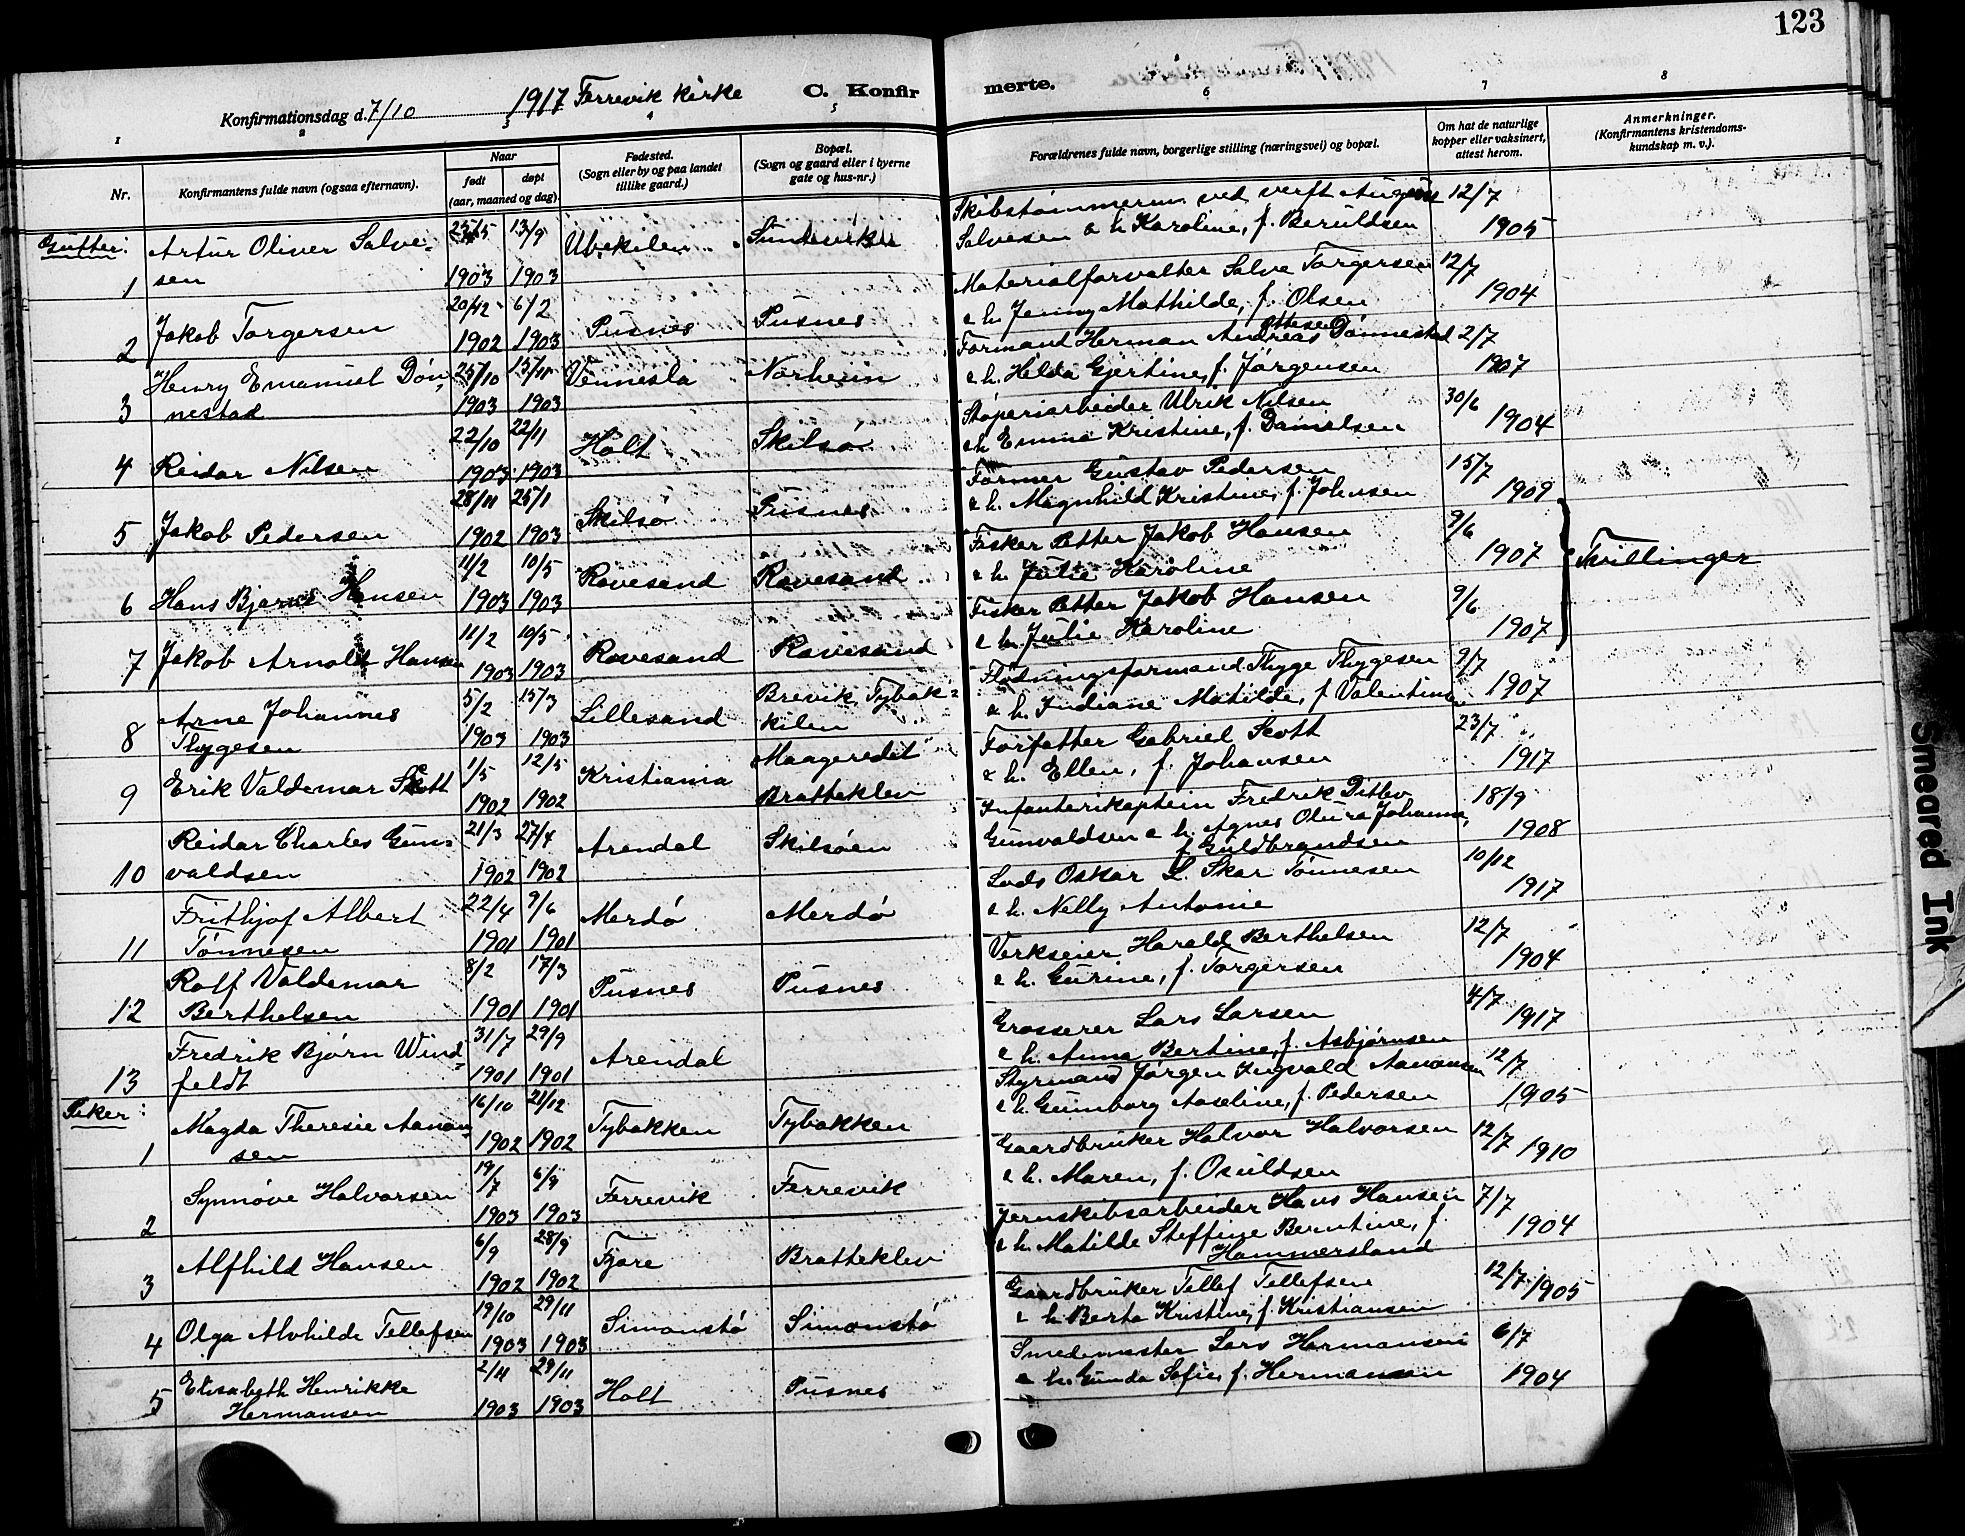 123
Konfirmationsdag d. 7/10 1917 Færevik kirke C. Konfirmerte.
1 2 3 4 5 6 7 8
Nr.
Konfirmantens fulde navn (ogsaa efternavn).
Naar
født døpt
(aar, maaned og dag)
Fødested.
(Sogn eller by og paa landet
tillike gaard.)
Bopæl.
(Sogn og gaard eller i byerne
gate og hus-nr.)
Forældrenes fulde navn, borgerlige stilling (næringsvei) og bopæl.
Om hat de naturlige
kopper eller vaksinert,
attest herom.
Anmerkninger.
(Konfirmantens kristendoms-
kundskap m. v.).
Gutter:
1 Artur Oliver Salve-
sen 1903 13/9 1903 Ubekilen
Skibstømmerm. ved verft August
Salvesen & h. Karoline, f. Beruldsen 12/7 1905
2 Jakob Torgersen 20/12 1902 6/2 1903 Pusnes Pusnes
Materialforvalter Salve Torgersen
& h. Jenny Mathilde, f. Olsen 12/7 1904
3 Henry Emanuel Døn-
nestad 25/10 1903 15/11 1903 Vennesla Norheim
Formand Herman Andreas Ottesen Dønnestad
& h. Hilda Gjertine, f. Jørgensen 2/7 1907
4 Reidar Nilsen 22/10 1903 22/11 1903 Holt Skilsø
Støperiarbeider Ulrik Nilsen
& h. Emma Kristine, f. Danielsen 30/6 1904
5 Jakob Pedersen 28/11 1902 25/1 1903 Skilsø Pusnes
Former Gustav Pedersen
& h. Magnhild Kristine, f. Johnsen 15/7 1909
6 Hans Bjarne Hansen 11/2 1903 10/5 1903 Ravesand Ravesand
Fisker Petter Jakob Hansen
& h. Julie Karoline 9/6 1907 Tvillinger
7 Jakob Arnold Hansen 11/2 1903 10/5 1903 Ravesand Ravesand
Fisker Petter Jakob Hansen
& h. Julie Karoline 9/6 1907
8 Arne Johannes
Thygesen 5/2 1903 15/3 1903 Lillesand Brevik, Tybak-
kilen
Flødningsformand Thyge Thygesen
& h. Indiane Matilde, f. Valentinsen 9/7 1907
9 Erik Valdemar Scott 1/5 1902 12/5 1902 Kristiania Maageredet
Bratteklev
Forfatter Gabriel Scott
& h. Ellen, f. Johansen 23/7 1917
10 Reidar Charles Gun-
valdsen 21/3 1902 27/4 1902 Arendal Skilsøen
Infanterikaptein Fredrik Ditlev
Gunvaldsen & h. Agnes Johanna,
f. Guldbrandsen 18/9 1908
11 Frithjof Albert
Tønnesen 22/4 1901 9/6 1901 Merdø Merdø
Lods Oskar L. Skar Tønnesen
& h. Nelly Antonie 10/12 1917
12 Rolf Valdemar
Berthelsen 8/2 1901 17/3 1901 Pusnes Pusnes
Verkseier Harald Berthelsen
& h. Gurine, f. Torgersen 12/7 1904
13 Fredrik Bjørn Wind-
feldt 31/7 1901 29/9 1901 Arendal
Grosserer Lars Larsen
& h. Anna Bertine, f. Asbjørnsen 4/7 1917
Piker:
1 Magda Theresie Aanon-
sen 16/10 1902 21/12 1902 Tybakken Tybakken
Styrmand Jørgen Ingvald Aanonsen
& h. Gunborg Aaseline, f. Pedersen 12/7 1905
2 Synnøve Halvorsen 19/7 1903 6/9 1903 Færrevik Færrevik
Gaardbruker Halvor Halvorsen
& h. Maren, f. Osuldsen 12/7 1910
3 Alfhild Hansen 6/9 1902 28/9 1902 Fjære Bratteklev
Jernskibsarbeider Hans Hansen
& h. Matilde Steffine Berntine, f.
Hammersland 7/7 1904
4 Olga Alvhilde Tellefsen 19/10 1903 29/11 1903 Simonstø Simonstø
Gaardbruker Tellef Tellefsen
& h. Berta Kristine, f. Kristiansen 12/7 1905
5 Elisabeth Henrikke
Hermansen 2/11 1903 29/11 1903 Holt Pusnes
Smedemester Lars Hermansen
& h. Gunda Sofie, f. Hermansen 6/7 1904
Smeared Ink